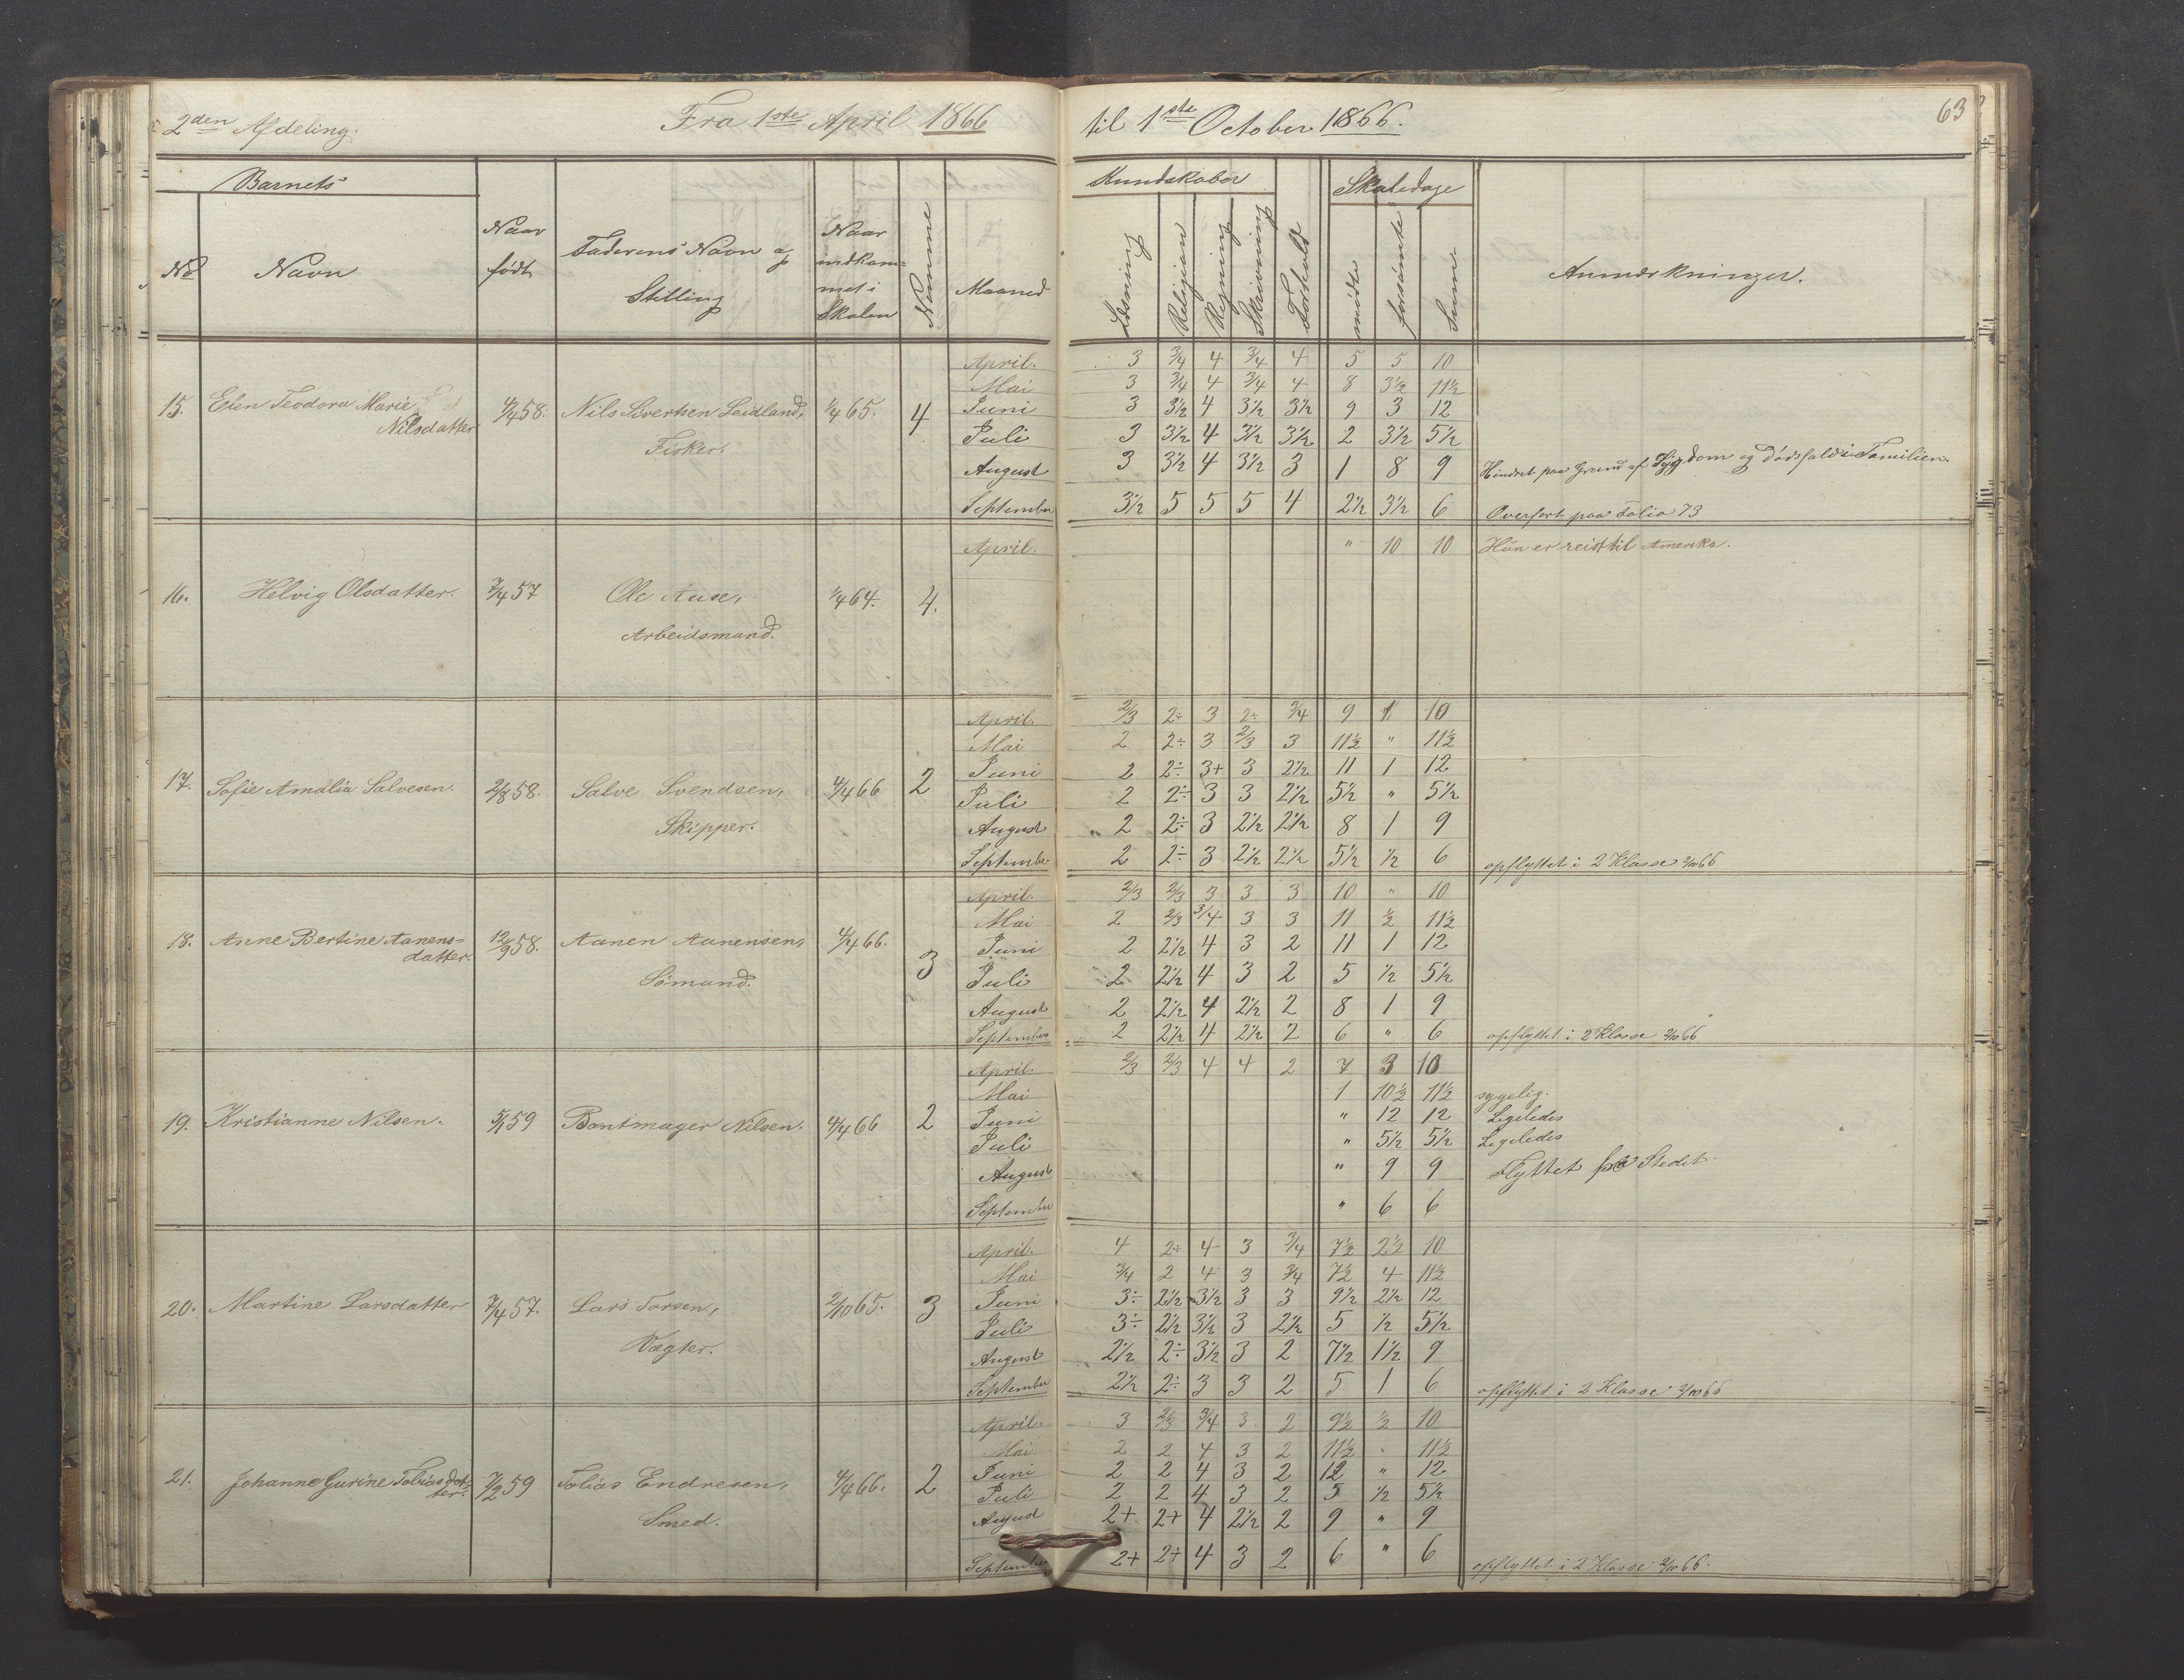 2den Afdeling.
Fra 1ste April 1866
til 1ste October 1866.
63
Barnets
Kundskaber
Skoledage
No
Navn
Naar født
Faderens Navn og Stilling
Naar indkommet i Skolen
Nemme
Maaned
Læsning
Religion
Regning
Skrivning
Forhold
mødte
forsømte
Sum
Anmærkninger.
15. Elen Teodora Marie Nilsdatter 4/4 58. Nils Sivertsen Leidland, Fisker. 1/4 65. 4
April. 3 3/4 4 3/4 4 5 5 10
Mai 3 3/4 4 3/4 4 8 3½ 11½
Juni 3 3½ 4 3½ 3½ 9 3 12
Juli 3 3½ 4 3½ 3½ 2 3½ 5½
August 3 3½ 4 3½ 3 1 8 9 Hindret paa Grund af Sygdom og Dødsfald i Familien.
September 3½ 5 5 5 4 2½ 3½ 6 Overført paa Folio 73
16. Helvig Olsdatter. 7/4 57 Ole Aase, Arbeidsmand. 1/4 64. 4.
April. " 10 10 Hun er reist til Amerika.
17. Sofie Amalia Salvesen. 2/8 58. Salve Svendsen, Skipper. 4/4 66 2
April. 2/3 2÷ 3 2÷ 3/4 9 1 10
Mai 2 2÷ 3 2/3 3 11½ " 11½
Juni 2 2÷ 3+ 3 2½ 11 1 12
Juli 2 2÷ 3 3 2½ 5½ " 5½
August 2 2÷ 3 2½ 2½ 8 1 9
September 2 2÷ 3 2½ 2½ 5½ ½ 6 opflyttet i 2 Klasse 2/10 66
18. Anne Bertine Aanensdatter. 12/9 58. Aanen Aanensen, Sømand. 4/4 66. 3
April. 2/3 2/3 3 3 3 10 " 10
Mai 2 2/3 3/4 3 3 11 ½ 11½
Juni 2 2½ 4 3 2 11 1 12
Juli 2 2½ 4 3 2 5 ½ 5½
August 2 2½ 4 2½ 2 8 1 9
September 2 2½ 4 2½ 2 6 " 6 opflyttet i 2 Klasse 2/10 66
19. Kristianne Nilsen. 5/1 59 Bontmager Nilsen. 4/4 66 2
April. 2/3 2/3 4 4 2 7 3 10
Mai 1 10½ 11½ sygelig.
Juni " 12 12 Ligeledes
Juli " 5½ 5½ Ligeledes
August " 9 9 Flyttet fra Stedet.
September " 6 6
20. Martine Larsdatter 7/4 57. Lars Torsen, Vægter. 2/10 65. 3
April. 4 2÷ 4 3 3/4 7½ 2½ 10
Mai 3/4 2 4 3 3/4 7½ 4 11½
Juni 3÷ 2½ 3½ 3 3 9½ 2½ 12
Juli 3÷ 2½ 3½ 3 2½ 5 ½ 5½
August 2½ 2÷ 3½ 3 2 7½ 1½ 9
September 2½ 2÷ 3 3 2 5 1 6 opflyttet i 2 Klasse 2/10 66
21. Johanne Gurine Tobiasdatter. 7/2 59 Tobias Endresen, Smed. 4/4 66. 2
April. 3 2/3 3/4 3 2 9½ ½ 10
Mai 2 2 4 3 2 11½ " 11½
Juni 2 2 4 3 2 12 " 12
Juli 2 2 4 3 2 5 ½ 5½
August 2+ 2+ 4 2½ 2 9 " 9
September 2+ 2+ 4 3 2 6 " 6 opflyttet i 2 Klasse 2/10 66.